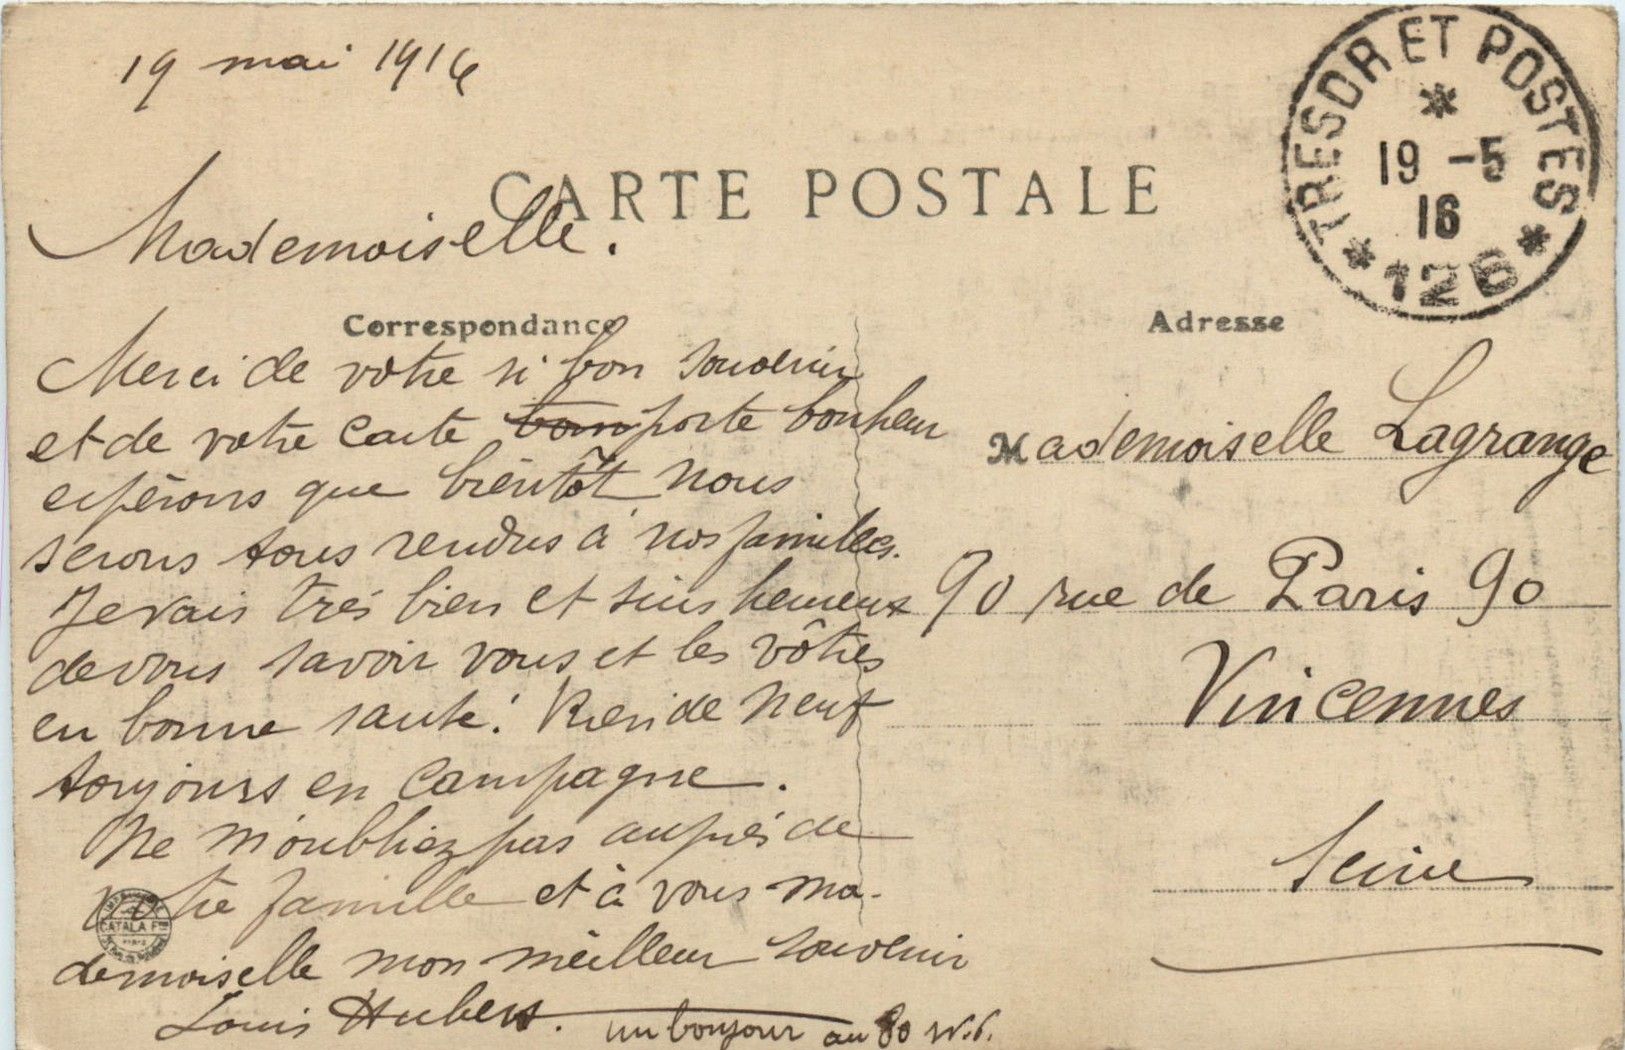 19 mai 1916
TRESOR ET POSTES
19 -5
16
* 126 *
CARTE POSTALE
Mademoiselle.
Correspondance
Merci de votre si bon souvenir
et de votre carte porte bonheur
espérons que bientôt nous
serons tous rendus à nos familles.
Je vais très bien et suis heureux
de vous savoir vous et les vôtres
en bonne santé. Rien de neuf
toujours en campagne.
Ne m'oubliez pas auprès de
votre famille et à vous ma-
demoiselle mon meilleur souvenir
Louis Hubert.
un bonjour au 80
CATALA Frès
Adresse
Mademoiselle Lagrange
90 rue de Paris 90
Vincennes
Seine